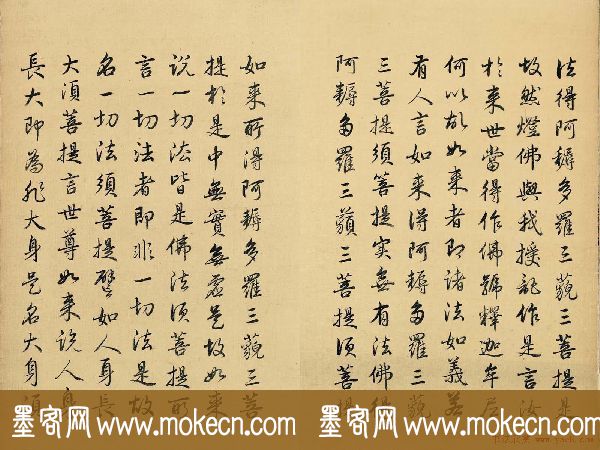 法得阿耨多羅三藐三菩提是
故然燈佛與我授記作是言汝
於来世當得作佛號釋迦牟尼
何以故如来者即諸法如義若
有人言如来得阿耨多羅三藐
三菩提須菩提實無有法佛得
阿耨多羅三藐三菩提須菩提
如来所得阿耨多羅三藐三菩
提於是中無實無虛是故如来
说一切法皆是佛法須菩提所
言一切法者即非一切法是故
名一切法須菩提譬如人身長
大須菩提言世尊如来说人身
長大即為非大身是名大身須
墨客网 www.mokecn.com
墨客网 www.mokecn.com